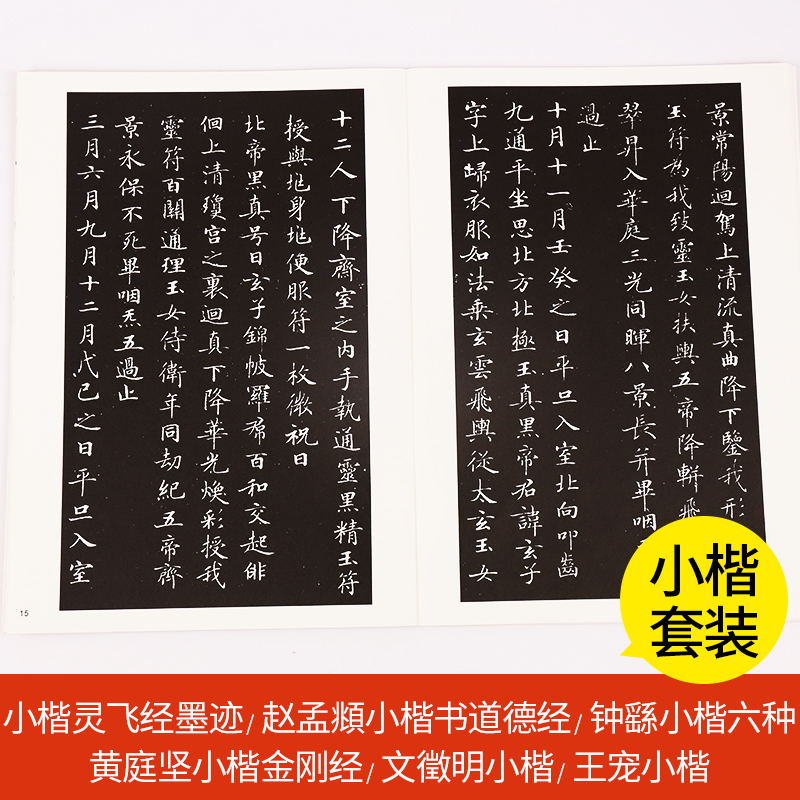 景常陽迴駕上清流真曲降下鑒我形
玉符為我致靈玉女扶輿五帝降軿飛
翠昇入華庭三光同暉八景長并畢咽
過止
十月十一月壬癸之日平旦入室北向叩齒
九通平坐思北方北極玉真黑帝君諱玄子
字上歸衣服如法乘玄雲飛輿從太玄玉女
十二人下降齋室之内手執通靈黑精玉符
授與地身地便服符一枚微祝曰
北帝黑真号曰玄子錦帔羅帬百和交起俳
佪上清瓊宫之裏迴真下降華光煥彩授我
靈符百關通理玉女侍衛年同劫紀五帝齊
景永保不死畢咽炁五過止
三月六月九月十二月戊己之日平旦入室
15
小楷
套装
小楷灵飞经墨迹/赵孟頫小楷书道德经/钟繇小楷六种
黄庭坚小楷金刚经/文徵明小楷/王宠小楷